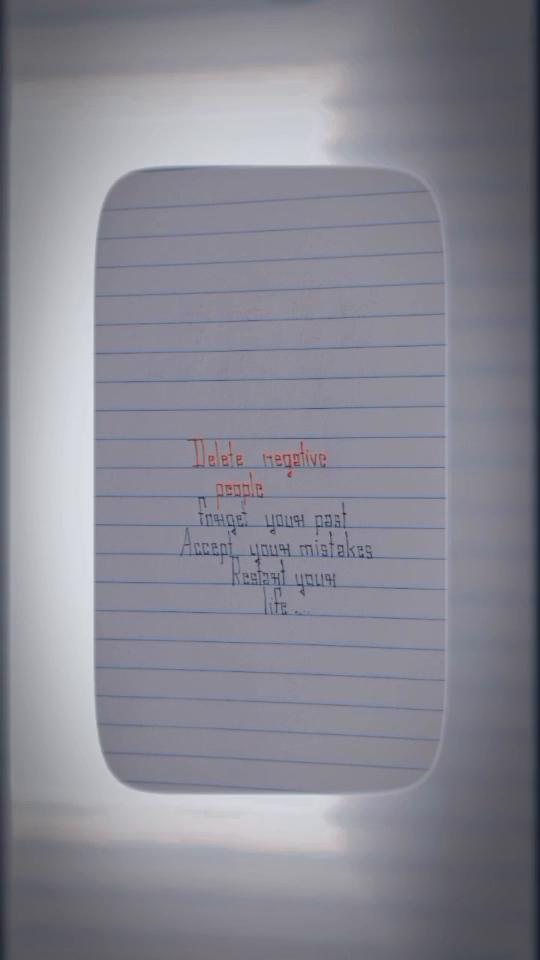 Delete negative
people
forget your past
Accept your mistakes
Restart your
life....